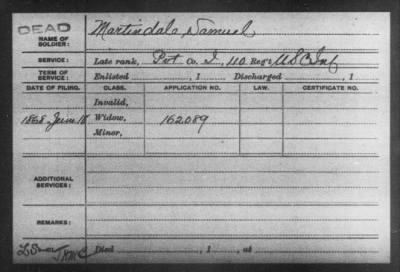 DEAD
NAME OF SOLDIER: Martindale, Samuel
SERVICE: Late rank, Pvt Co. I, 110 Reg't U S C Inf
TERM OF SERVICE: Enlisted , 1 Discharged , 1
DATE OF FILING. CLASS. APPLICATION NO. LAW. CERTIFICATE NO.
Invalid,
1868, June 18 Widow, 162089
Minor,
ADDITIONAL SERVICES:
REMARKS:
Died , 1 , at